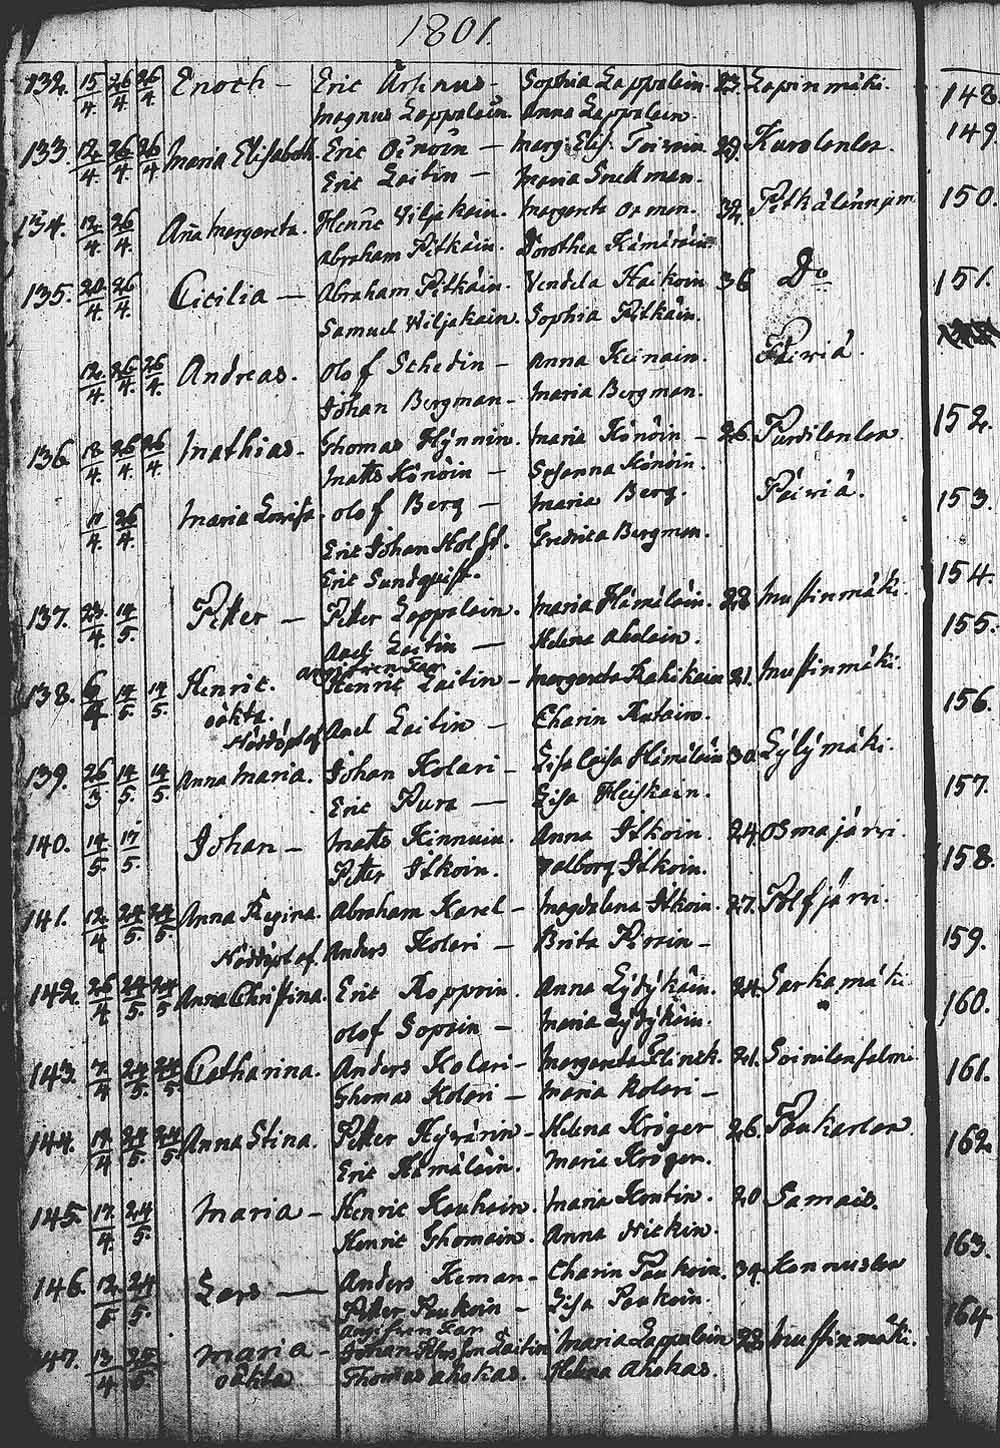 1801.
132. 15/4 26/4 26/4 Enoch - Eric Sophia Lappalain. 23. Lapinmäki.
Magnus Lappalain. Anna Lappalain.
133. 12/4 26/4 26/4 Maria Elisabeth. Eric Oinoin - Marg: Elis. Toivain 29.
Eric Laitin - Maria Snellman.
134. 12/4 26/4 Ana Margareta. Henric Wiljakain. Margareta Orman. 32.
Abraham Pitkäin. Dorothea Hämäräin
135. 20/4 26/4 Cicilia - Abraham Pitkäin. Vendela Haikoin 36 Do
Samuel Wiljakain. Sophia Pitkäin.
12/4 26/4 26/4 Andreas. Olof Schedin - Anna Keinain. Peiriä.
Johan Bergman - Maria Bergman.
136 18/4 26/4 26/4 Mathias - Thomas Hynnin. Maria Könöin - 26
Matts Könöin - Susanna Könöin.
11/4 26/4 Maria Lovisa. Olof Berg - Maria Berg. Peiriä.
Eric Johan Holst. Fredrica Bergman.
Eric Sundquist.
137. 23/4 14/5 Petter - Petter Lappalain. Maria Hämäläin. 28 Mustinmäki.
Axel Laitin - Helena Aholain.
angifven Far
138. 6/4 14/5 14/5 Henric. Henric Laitin - Margareta Rahikain 21. Mustinmäki.
oäkta.
Nöddöpt af Axel Laitin - Charin Kutain.
139. 26/3 14/5 14/5 Anna Maria. Johan Kolari - Lisa Caisa Hämäläin 30. Lylymäki.
Eric Pura - Lisa Heiskain.
140. 14/5 17/5 Johan - Matts Kinnuin. Anna Itkoin. 24. Osmajärvi.
Petter Itkoin. Valborg Itkoin.
141. 12/4 24/5 24/5 Anna Regina. Abraham Karel - Magdalena Itkoin. 27. Pölfjärvi.
Nöddöpt af. Anders Kolari - Brita Pirrin -
142. 26/4 24/5 24/5 Anna Christina. Eric Ropprin. Anna Lydykäin. 24. Sarkamäki.
Olof Soprin - Maria Lydykäin.
143. 7/4 24/5 24/5 Catharina. Anders Kolari - Margareta Flinck. 21. Soinilansalmi
Thomas Kolari - Maria Kolari -
144. 19/4 24/5 24/5 Anna Stina. Petter Hyvärin - Helena Kröger 26. Paukarlax
Eric Hämäläin. Maria Kröger.
145. 17/4 24/5 Maria - Henric Kauhain. Maria Kontin. 20 Samais.
Henric Thomain. Anna Nickin.
146. 12/5 24/5 Lars - Anders Heman - Charin Paukoin. 34. Konnuslax
Petter Paukoin - Lisa Paukoin.
angifven Far
147. 13/4 25/5 Maria - Johan Pehrsson Laitin Maria Lappalain 28 Mustinmäki.
oäkta Thomas Ahokas. Helena Ahokas.
148
149.
150.
151.
152.
153.
154.
155.
156.
157.
158.
159.
160.
161.
162
163.
164